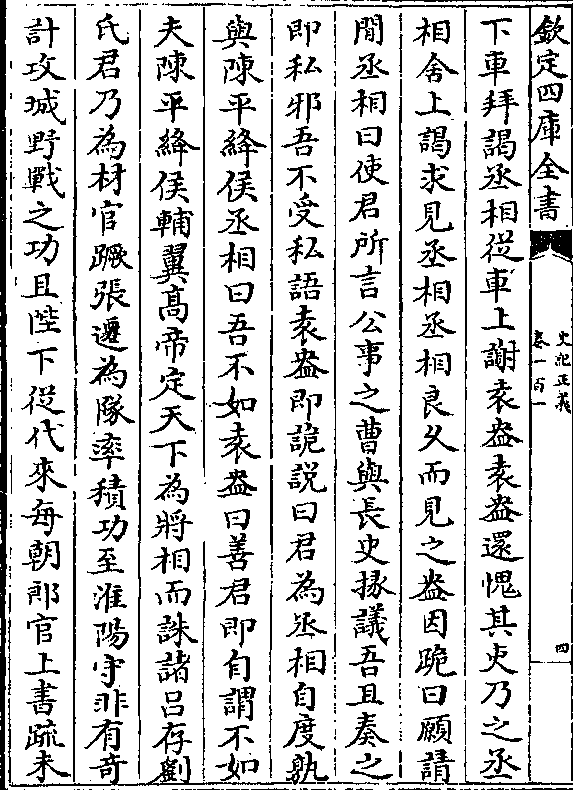 欽定四庫全書
史記正義
卷一百一
四
下車拜謁丞相從車上謝袁盎袁盎還愧其吏乃之丞
相舍上謁求見丞相丞相良久而見之盎因跪曰願請
閒丞相曰使君所言公事之曹與長史掾議吾且奏之
即私邪吾不受私語袁盎即跪說曰君為丞相自度孰
與陳平絳侯丞相曰吾不如袁盎曰善君即自謂不如
夫陳平絳侯輔翼髙帝定天下為將相而誅諸吕存劉
氏君乃為材官蹶張遷為隊率積功至淮陽守非有奇
計攻城野戰之功且陛下從代來每朝郎官上書疏未